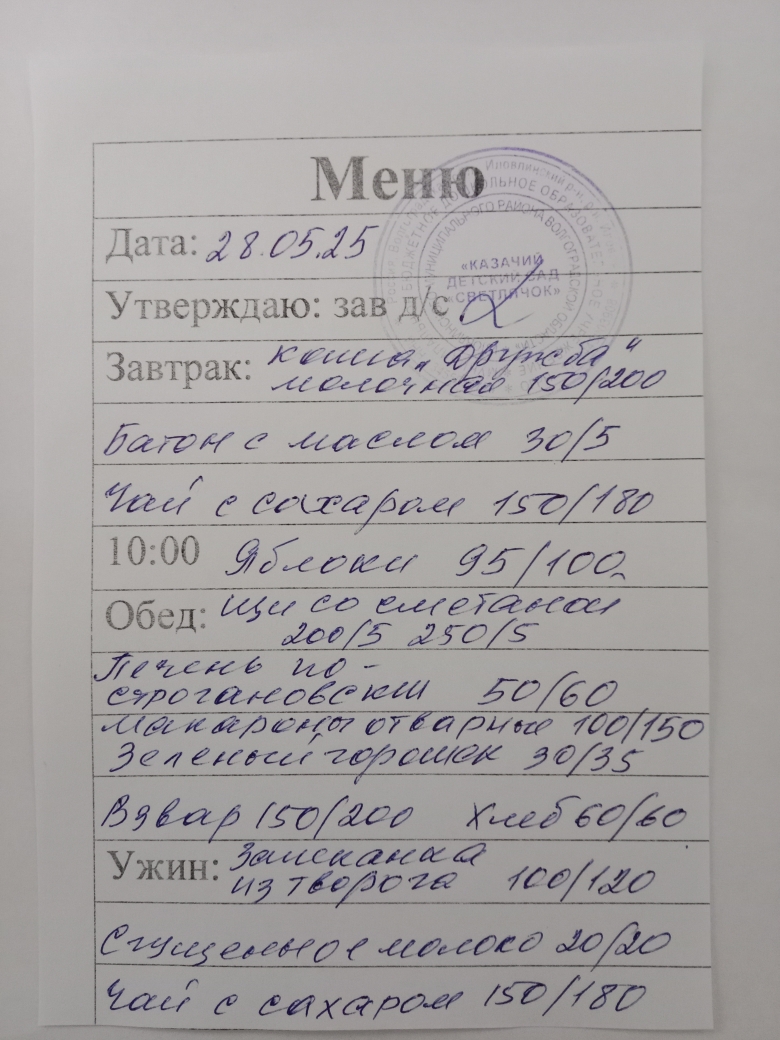 Меню
Дата: 28.05.25
Утверждаю: зав д/с
«КАЗАЧИЙ
ДЕТСКИЙ САД
«СВЕТЛЯЧОК»
Завтрак: каша „Дружба“
молочная 150/200
Батон с маслом 30/5
Чай с сахаром 150/180
10:00 Яблоки 95/100
Обед: щи со сметаной
200/5 250/5
Печень по-
строгановски 50/60
Макароны отварные 100/150
Зеленый горошек 30/35
Взвар 150/200 Хлеб 60/60
Ужин: Запеканка
из творога 100/120
Сгущенное молоко 20/20
Чай с сахаром 150/180